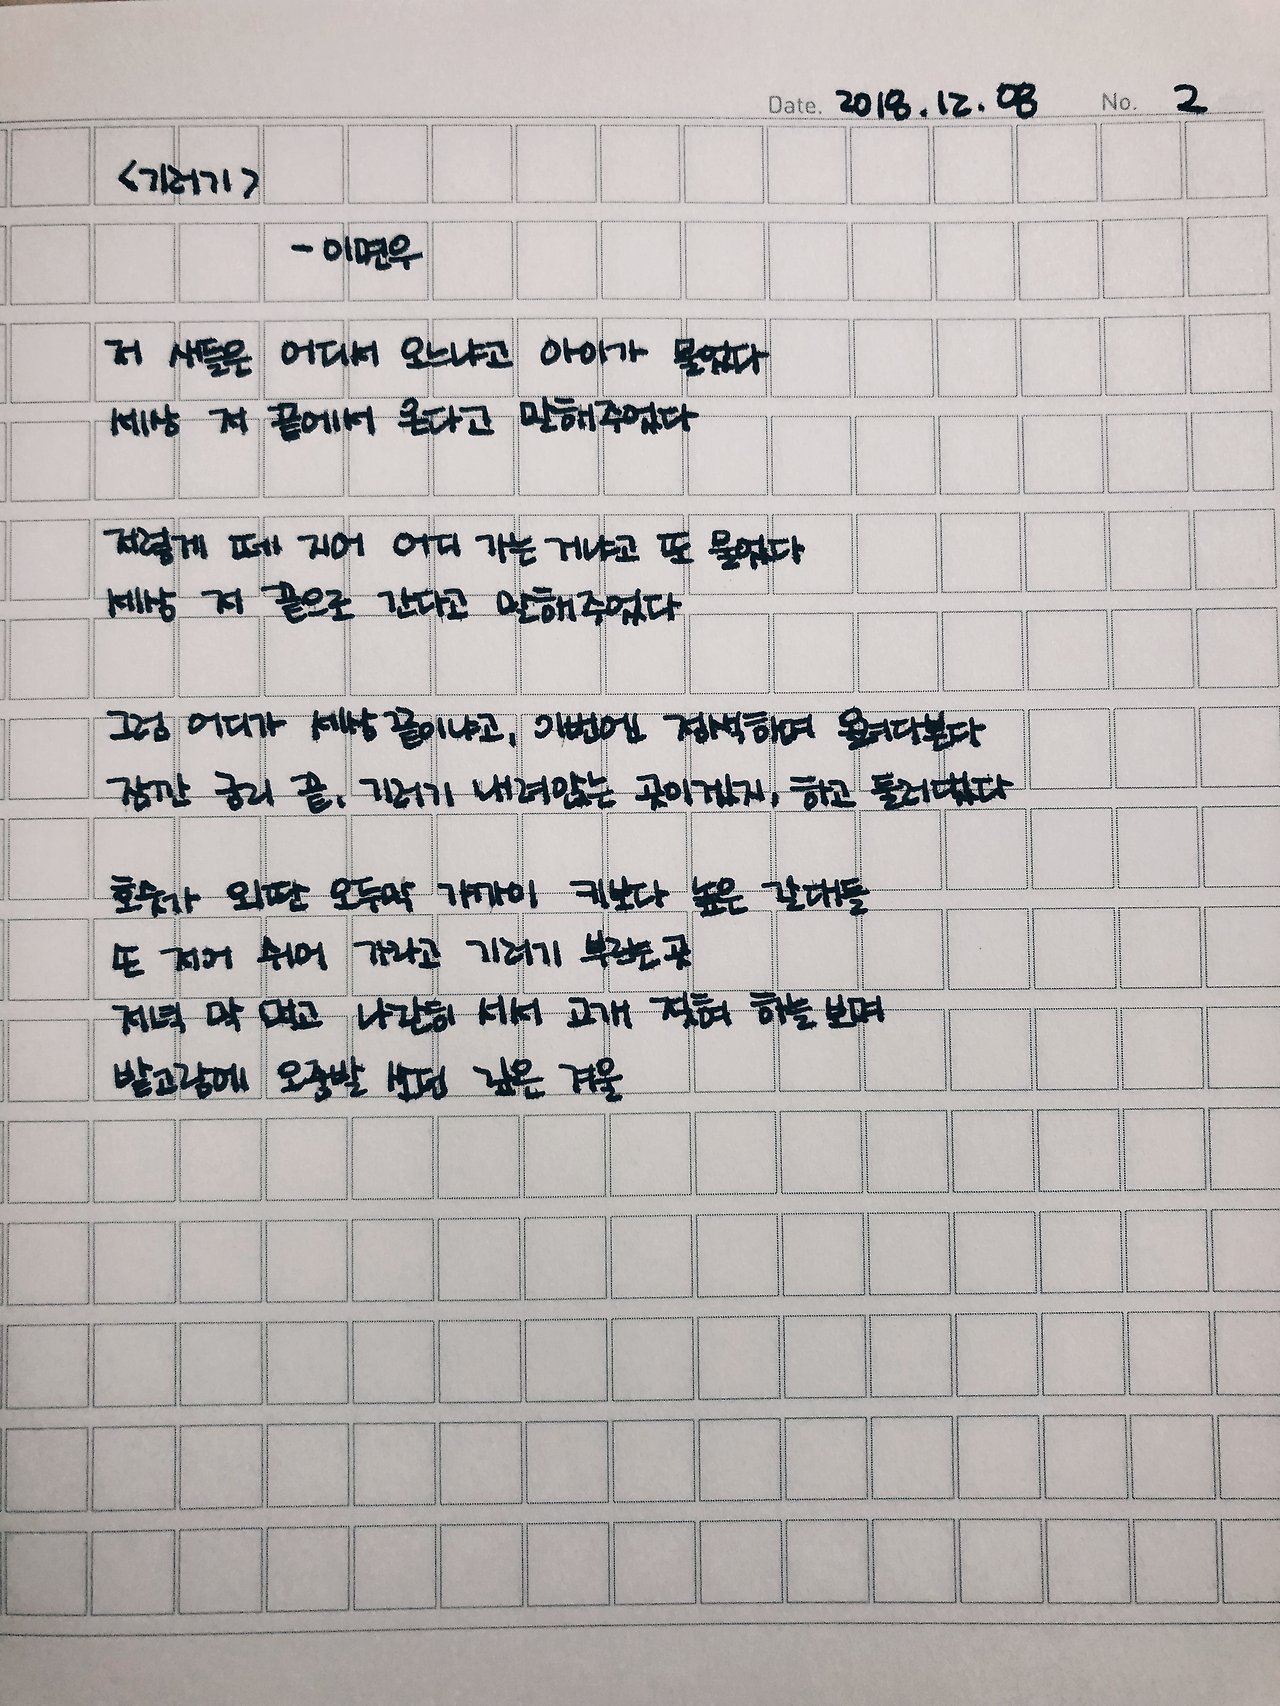 Date. 2018.12.08 No. 2
<기러기>
- 이면우
저 새들은 어디서 오느냐고 아이가 물었다
세상 저 끝에서 온다고 말해주었다
저렇게 떼 지어 어디 가는 거냐고 또 물었다
세상 저 끝으로 간다고 말해주었다
그럼 어디가 세상 끝이냐고, 이번엔 정색하며 올려다본다
잠깐 궁리 끝, 기러기 내려앉는 곳이겠지, 하고 둘러댔다
호숫가 외딴 오두막 가까이 키보다 높은 갈대들
또 저어 쉬어 가라고 기러기 부르는 곳
저녁 막 먹고 나란히 서서 고개 젖혀 하늘 보며
밭고랑에 오줌발 쏘던 깊은 겨울